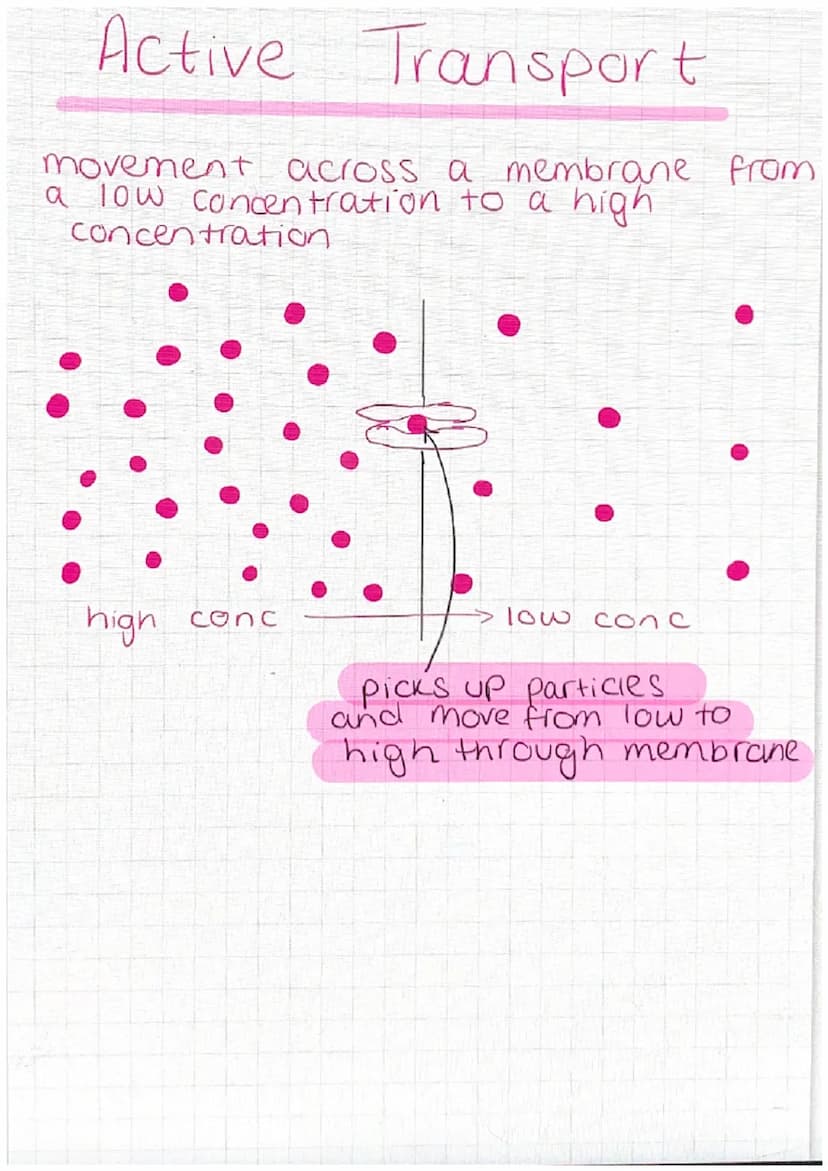 Active Transport
movement across a membrane from
a low concentration to a high
concentration
high conc → low conc
picks up particles
and move from low to
high through membrane